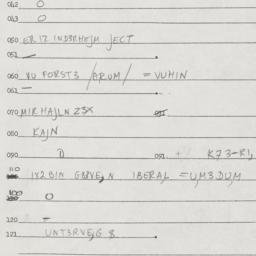 042 O
043 O
050 ER IZ IND3RHEJM JECT
051 —
060 VU FORST3 /ARUM/ = VUHIN
061 —
070 MIR HAJLN Z3X
080 KAJN
090 D 091 + K73-R1,
110 1X2BIN IBERAL = UM3DUM
O
120 –
121 UNT3RVEJG S